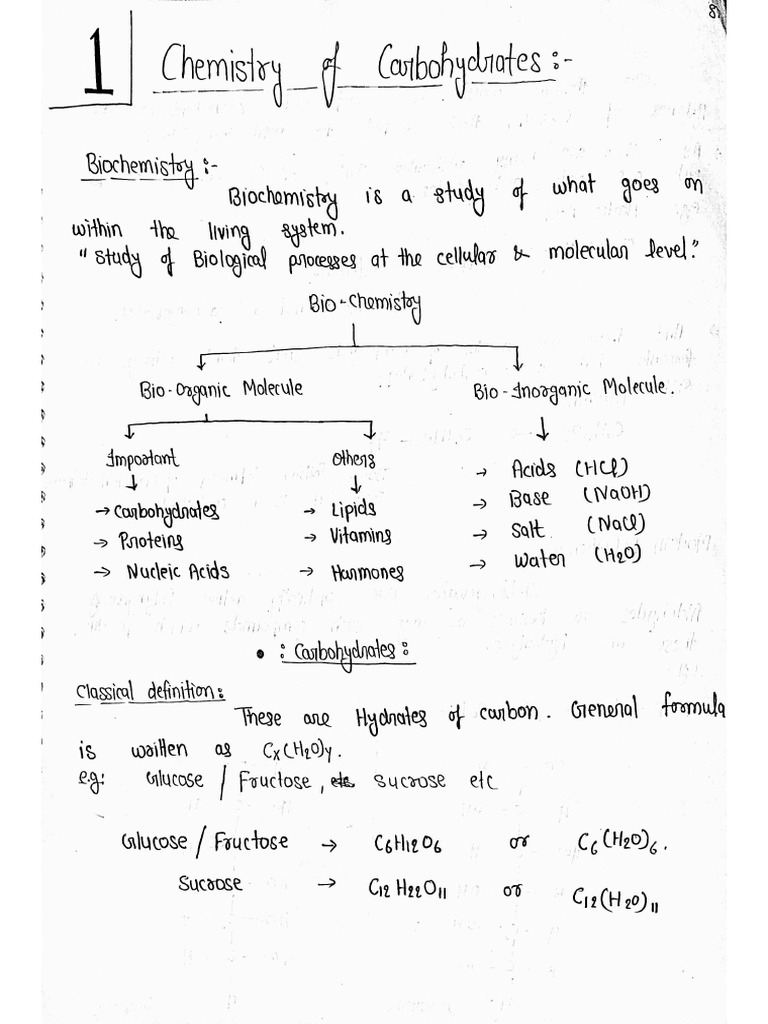 1 Chemistry of Carbohydrates :-
Biochemistry :-
Biochemistry is a study of what goes on
within the living system.
"Study of Biological processes at the cellular & molecular level."
Bio-Chemistry
Bio-Organic Molecule Bio-Inorganic Molecule.
Important Others
→ Carbohydrates → Lipids
→ Proteins → Vitamins
→ Nucleic Acids → Harmones
→ Acids (HCl)
→ Base (NaOH)
→ Salt (NaCl)
→ Water (H2O)
• : Carbohydrates :
Classical definition:
These are Hydrates of carbon. General formula
is written as Cx(H2O)y.
e.g: Glucose / Fructose, etc sucrose etc
Glucose / Fructose → C6H12O6 or C6(H2O)6.
Sucrose → C12H22O11 or C12(H2O)11